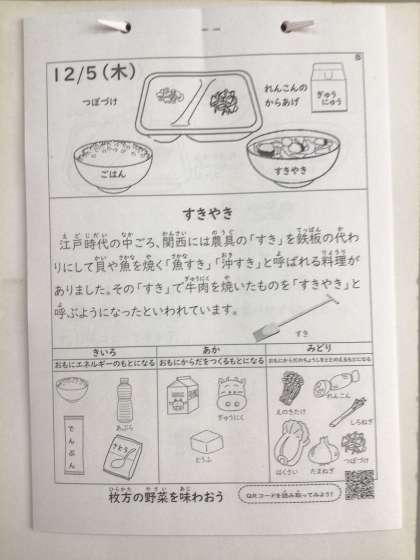 12/5(木)
つぼづけ
れんこんの
からあげ
ぎゅう
にゅう
ごはん
すきやき
すきやき
江戸時代の中ごろ、関西には農具の「すき」を鉄板の代わ
りにして貝や魚を焼く「魚すき」「沖すき」と呼ばれる料理が
ありました。その「すき」で牛肉を焼いたものを「すきやき」と
呼ぶようになったといわれています。
すき
きいろ
あか
みどり
おもにエネルギーのもとになる
おもにからだをつくるもとになる
おもにからだのちょうしをととのえるもとになる
あぶら
でんぷん
さとう
ぎゅうにく
とうふ
えのきたけ
れんこん
しろねぎ
はくさい
たまねぎ
つぼづけ
枚方の野菜を味わおう
QRコードを読み取ってみよう!